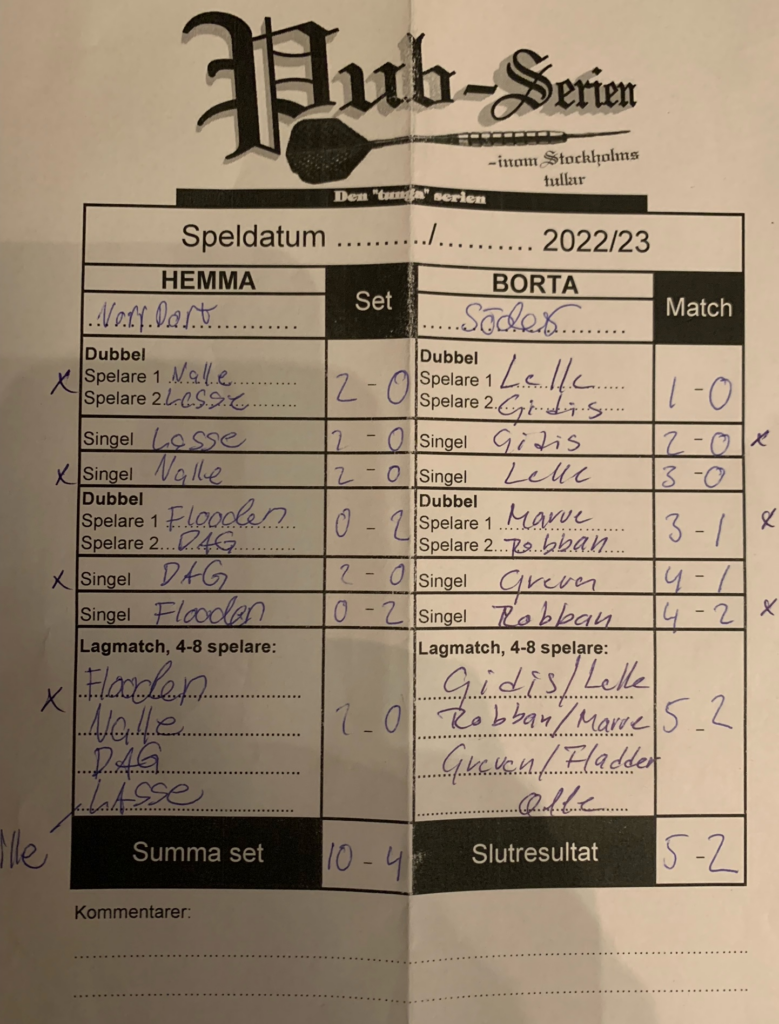 Pub-Serien
-inom Stockholms
tullar
Den "tunga" serien
Speldatum ........../.......... 2022/23
HEMMA Set BORTA Match
Dart Söder
Dubbel Dubbel
x Spelare 1 Nalle 2 - 0 Spelare 1 Lelle 1 - 0
Spelare 2 Lasse Spelare 2 Gidis
Singel Lasse 2 - 0 Singel Gidis 2 - 0 x
x Singel Nalle 2 - 0 Singel Lelle 3 - 0
Dubbel Dubbel
Spelare 1 Flooden 0 - 2 Spelare 1 Marve 3 - 1 x
Spelare 2 DAG Spelare 2 Robban
x Singel DAG 2 - 0 Singel Greven 4 - 1
Singel Flooden 0 - 2 Singel Robban 4 - 2 x
Lagmatch, 4-8 spelare: Lagmatch, 4-8 spelare:
x Flooden Gidis/Lelle
Nalle 2 - 0 Robban/Marve 5 - 2
DAG Greven/Fladder
LASSE Olle
Summa set 10 - 4 Slutresultat 5 - 2
Kommentarer: